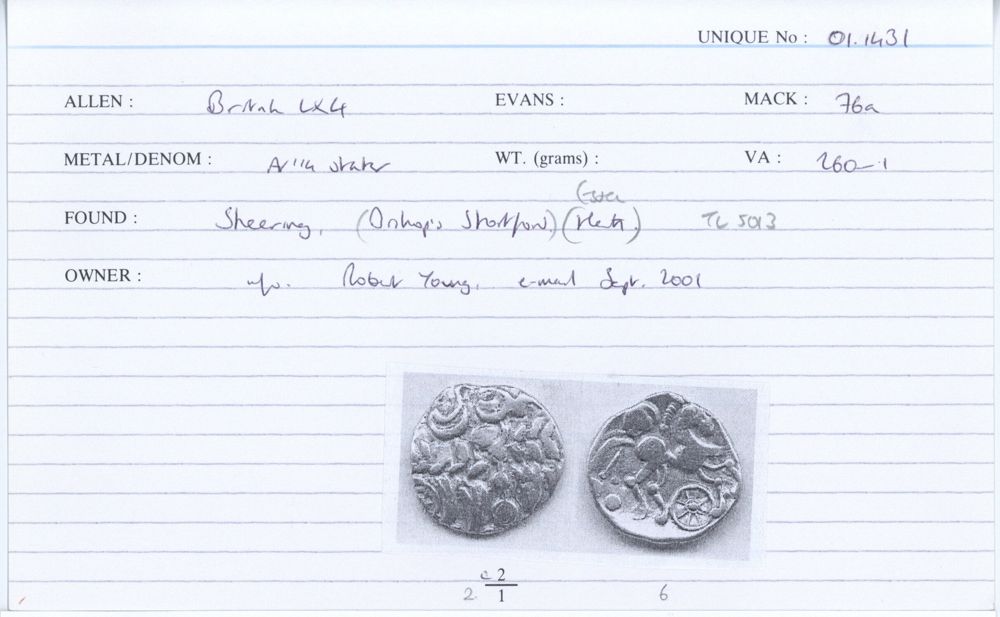 UNIQUE No : 01.1431
ALLEN : British LX4 EVANS : MACK : 76a
METAL/DENOM : stater WT. (grams) : VA : 260-1
Essex
FOUND : Sheering, (Bishop's Stortford) (Herts.) TL 5013
OWNER : Robert Young, e-mail Sept. 2001
c 2
2 1 6